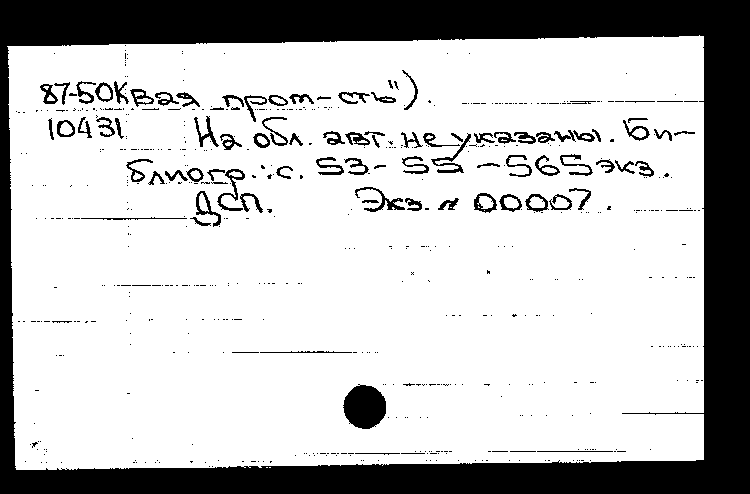 87-50К вая пром-сть").
10431 На обл. авт. не указаны. Би-
блиогр.: с. 53-55 - 565 экз.
ДСП. Экз. № 00007.